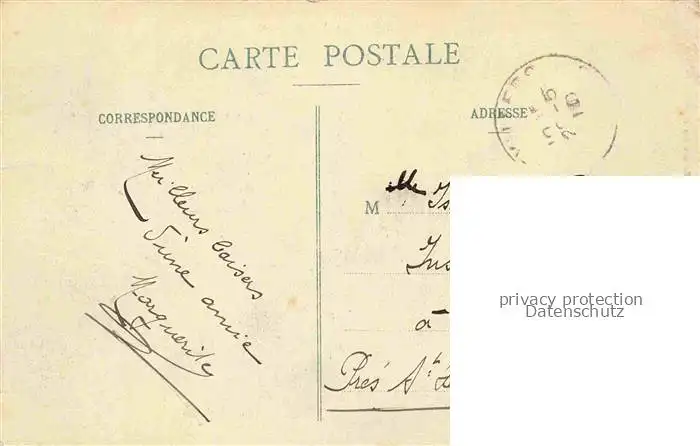 CARTE POSTALE
CORRESPONDANCE
ADRESSE
Meilleurs baisers
d'une amie
Marguerite
M lle Is
Ins
à
Près Ste
privacy protection
Datenschutz